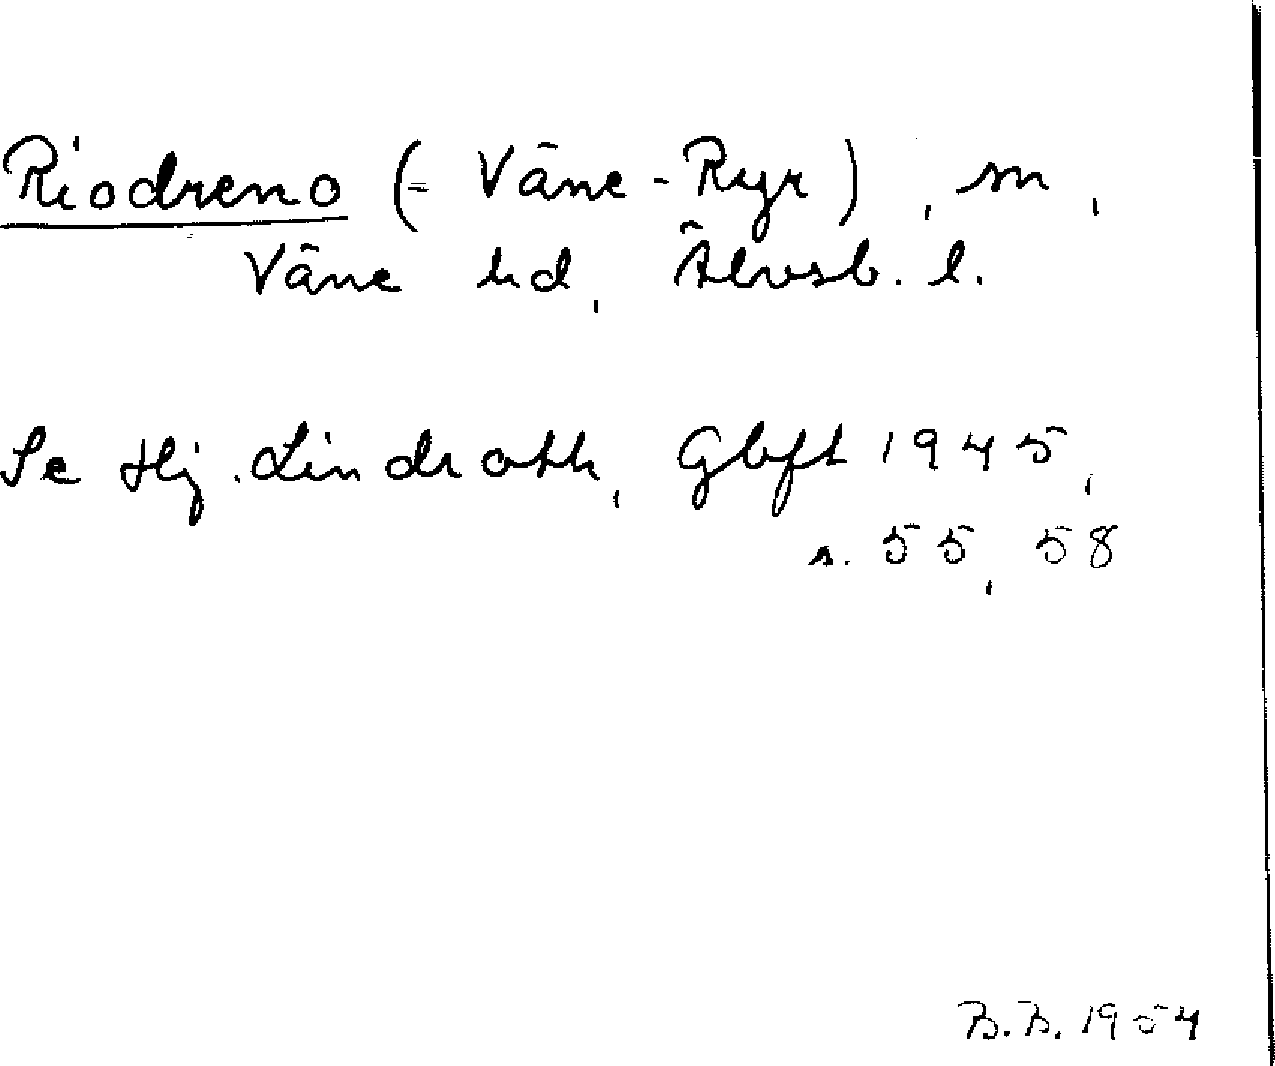 Riodreno (= Väne-Ryr), sn,
Väne hd, Älvsb. l.
Se Hj. Lindroth, Gbft 1945,
s. 55, 58
B.B. 1954